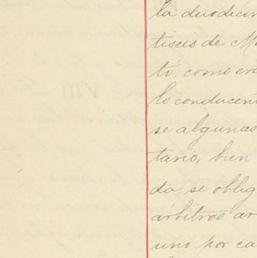 la duodecim
tiseis de M
ti, como era
lo conducen
se algunas
tario, bien
da, se oblig
árbitros ar
uno por ca